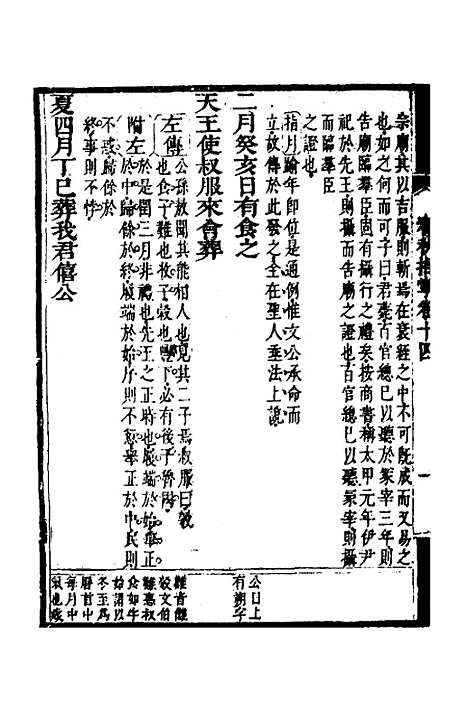 宗廟其以吉服則斬焉在衰絰之中不可旣成而又易之
也如之何而可子曰君薨百官總已以聽於冢宰三年則
告廟臨羣臣固有攝行之禮矣按商書稱太甲元年伊尹
祠於先王則攝而告廟之證也百官總已以聽冢宰則攝
而臨羣臣
之證也
指月踰年即位是通例惟文公承命而
立故傳於此發之全在聖人垂法上說
二月癸亥日有食之
天王使叔服來會葬
左傳公孫敖聞其能相人也見其二子焉叔服曰穀
也食子難也收子穀也豐下必有後于魯國
附左於是閏三月非禮也先王之正時也履端於始舉正
於中歸餘於終履端於始序則不愆舉正於中民則
不惑歸餘於
終事則不悖
夏四月丁巳葬我君僖公
春秋指掌卷十四
一
公日上
有朔字
難音儺
穀文伯
難惠叔
食如字
始謂以
冬至爲
曆首中
每月中
氣也